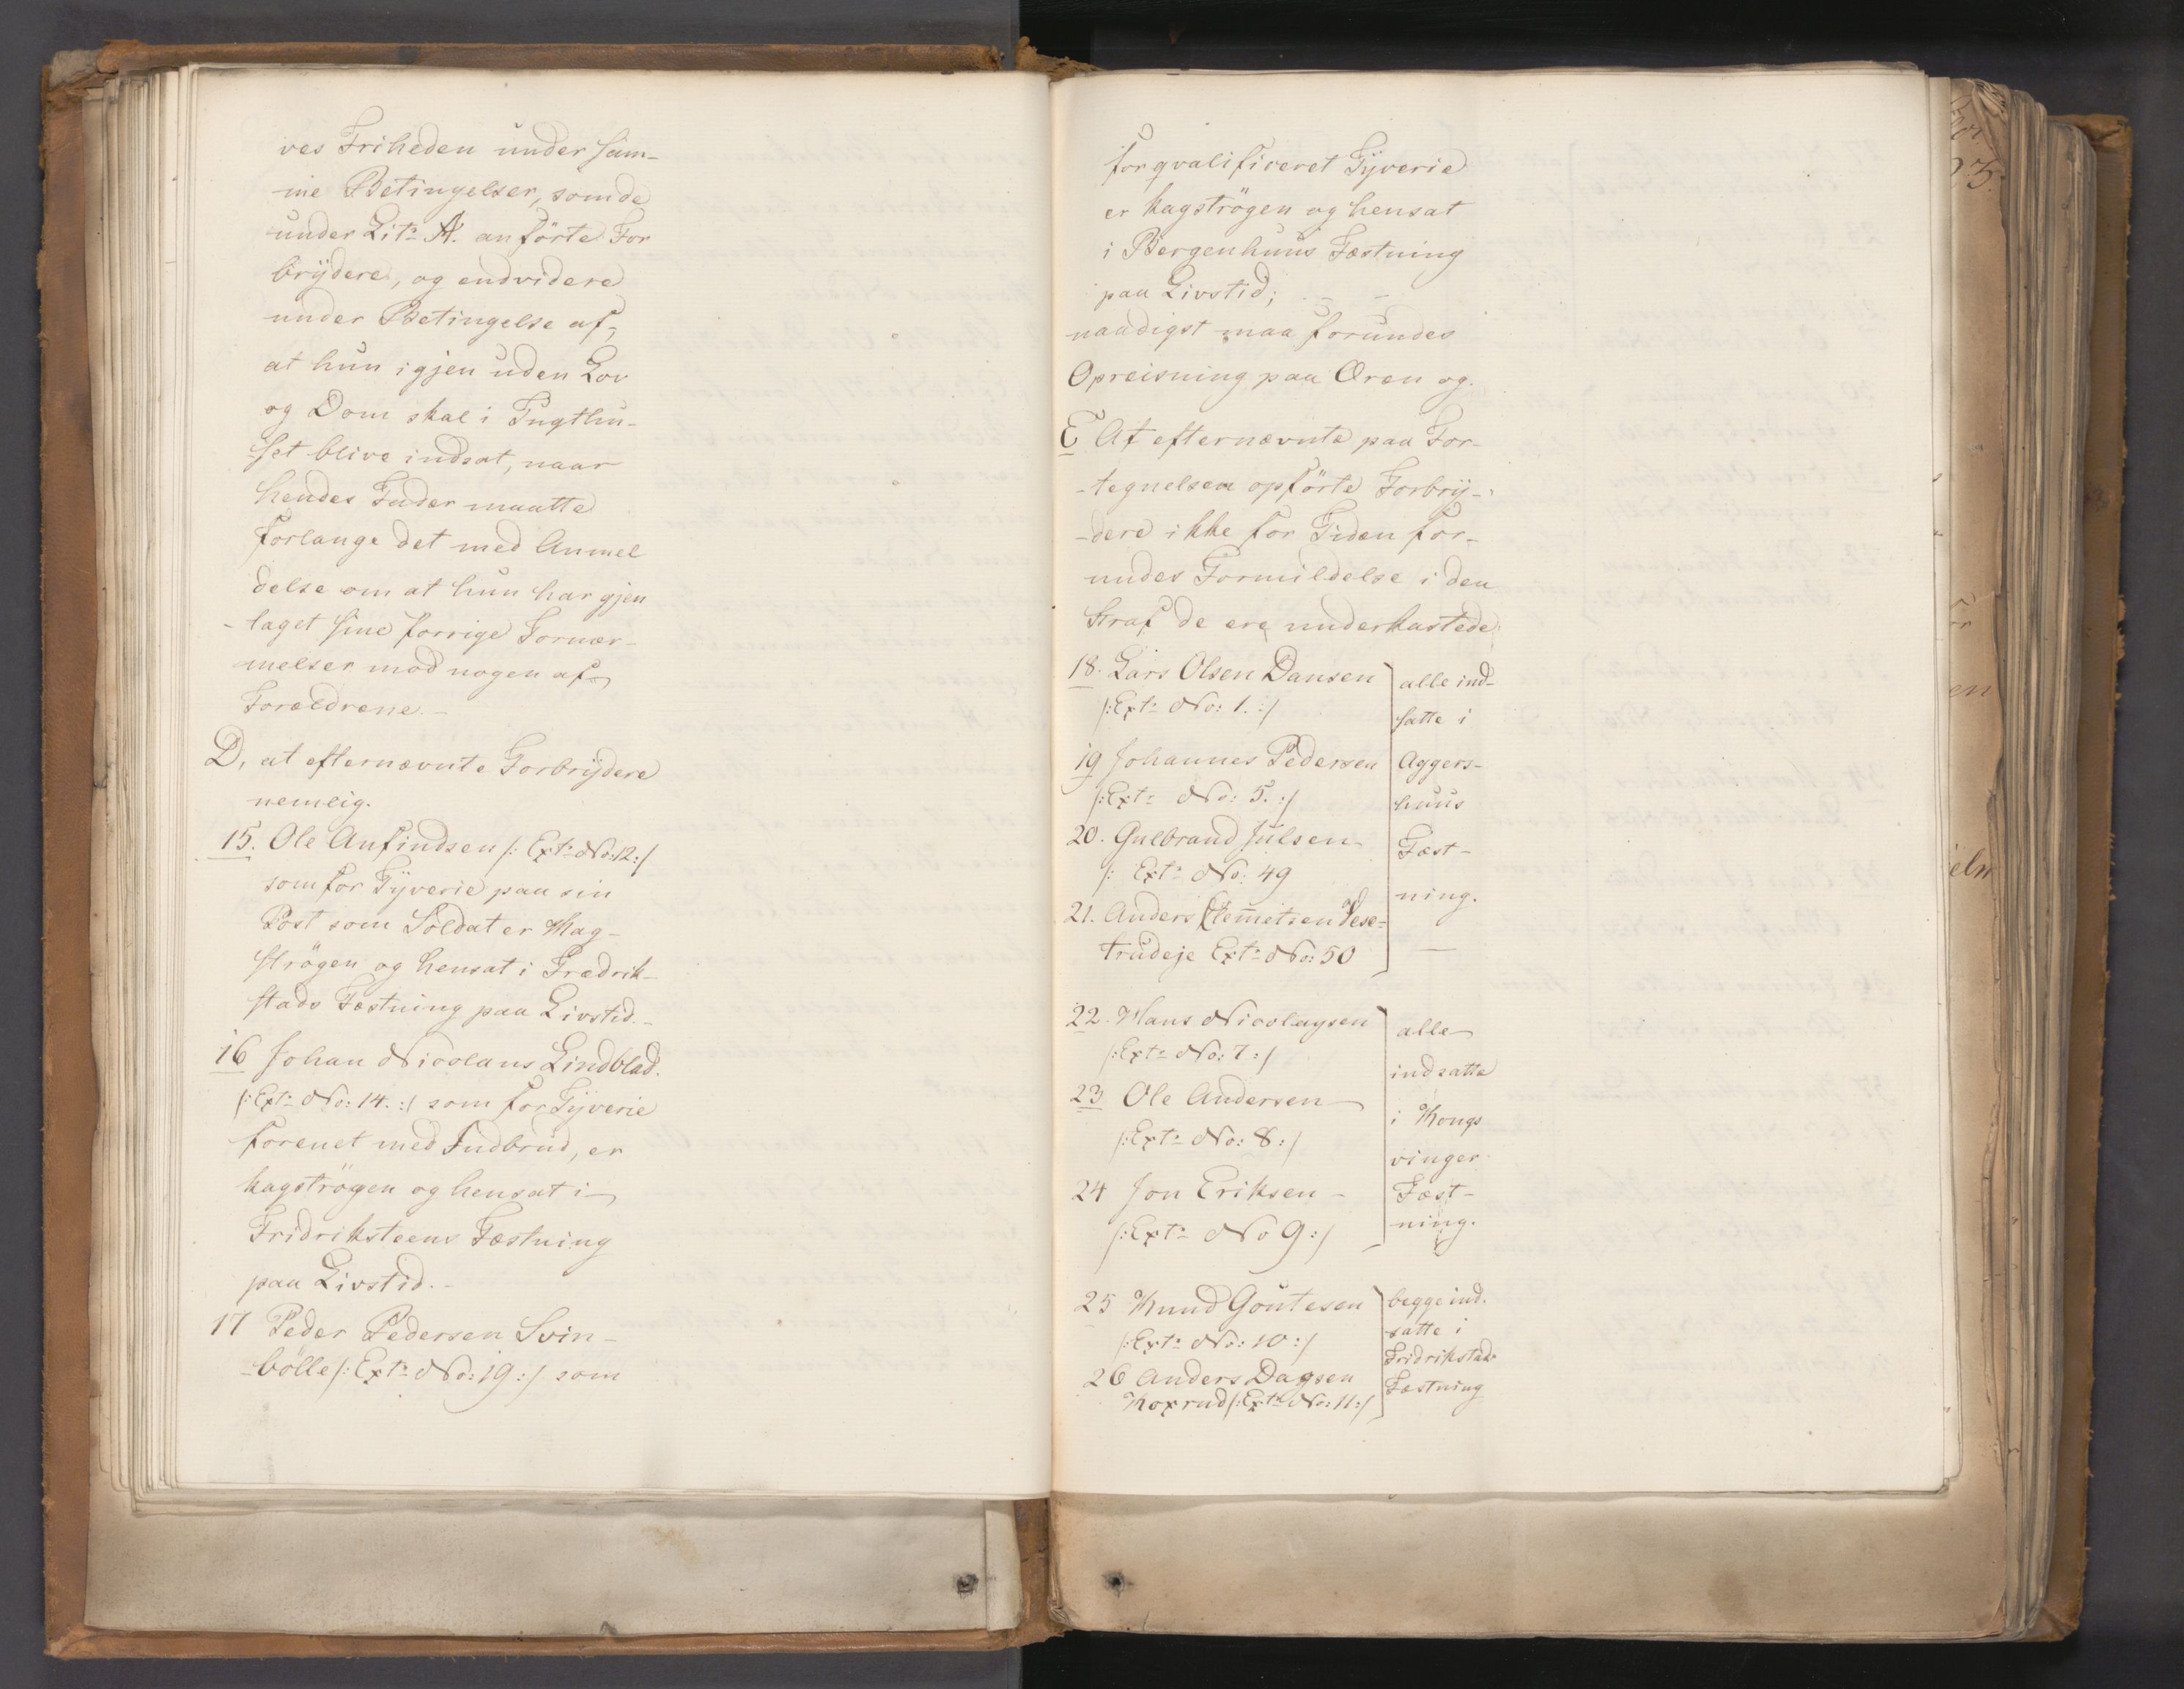 ves Friheden under sam-
me Betingelser, som de
under Litr A. anförte For
brÿdere, og endvidere
under Betingelse af,
at hun igjen uden Lov
og Dom skal i Tugthu-
set blive indsat, naar
hendes Fader maatte
forlange det med Anmel
delse om at hun har gjen
-taget sine forrige Fornær-
melser mod nogen af
Forældrene.-
D, at efternævnte Forbrÿdere
nemlig.
15. Ole Anfindsen /: Extr No: 12:/
som for Tÿverie paa sin
Post som Soldat er Kag-
strögen og hensat i Fredrik-
stads Fæstning paa Livstid.-
16 Johan Nicolaus Lindblad.
/: Extr No: 14. :/ som for Tÿverie
forenet med Indbrud, er
kagströgen og hensat i
Fridriksteens Fæstning
paa Livstid.-
17 Peder Pedersen Svin-
-bölle /: Extr No: 19 :/ som
for qvalificeret Tÿverie
er kagströgen og hensat
i Bergenhuus Fæstning
paa Livstid;
naadigst maa forundes
Opreisning paa Æren og.
E At efternævnte paa For-
-tegnelsen opförte Forbrÿ-
-dere ikke for Tiden for-
undes Formildelse i den
Straf de ere underkastede
18. Lars Olsen Dansen
/: Extr No: 1. :/
19 Johannes Pedersen
/: Extr No: 5. :/
20. Gulbrand Julsen
/: Extr No: 49
21. Anders Clemetsen
trudeje Extr No: 50
alle ind-
satte i
Aggers-
huus
Fæst-
ning.
22. Hans Nicolaysen
/: Extr No: 7 :/
23 Ole Andersen
/: Extr No: 8 :/
24 Jon Eriksen -
/: Extr No 9 :/
alle
indsatte
i Kongs
vinger
Fæst-
ning.
25 Knud Goutesen
/: Extr No: 10 :/
26 Anders Dagsen
Koxrud /: Extr No: 11 :/
begge ind-
satte i
Fridrikstads
Fæstning